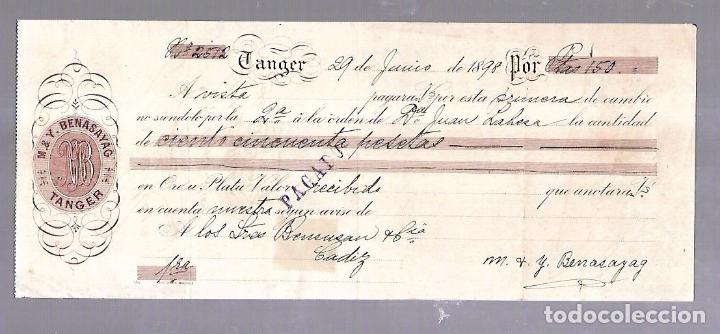 Nº 2512 Tanger 29 de Junio de 1898 Por Ptas 150.=
A vista pagará Vs por esta primera de cambio
no siendolo por la 2ª á la orden de Dn Juan Lahera la cantidad
de ciento cincuenta pesetas
en Oro u Plata Valor recibido que anotará Vs
en cuenta nuestra segun aviso de
A los Sres Bensusan & Cia
Cadiz
1ra M. & Y. Benasayag
PAGADO
M & Y. BENASAYAG
MB
TANGER
todocoleccion